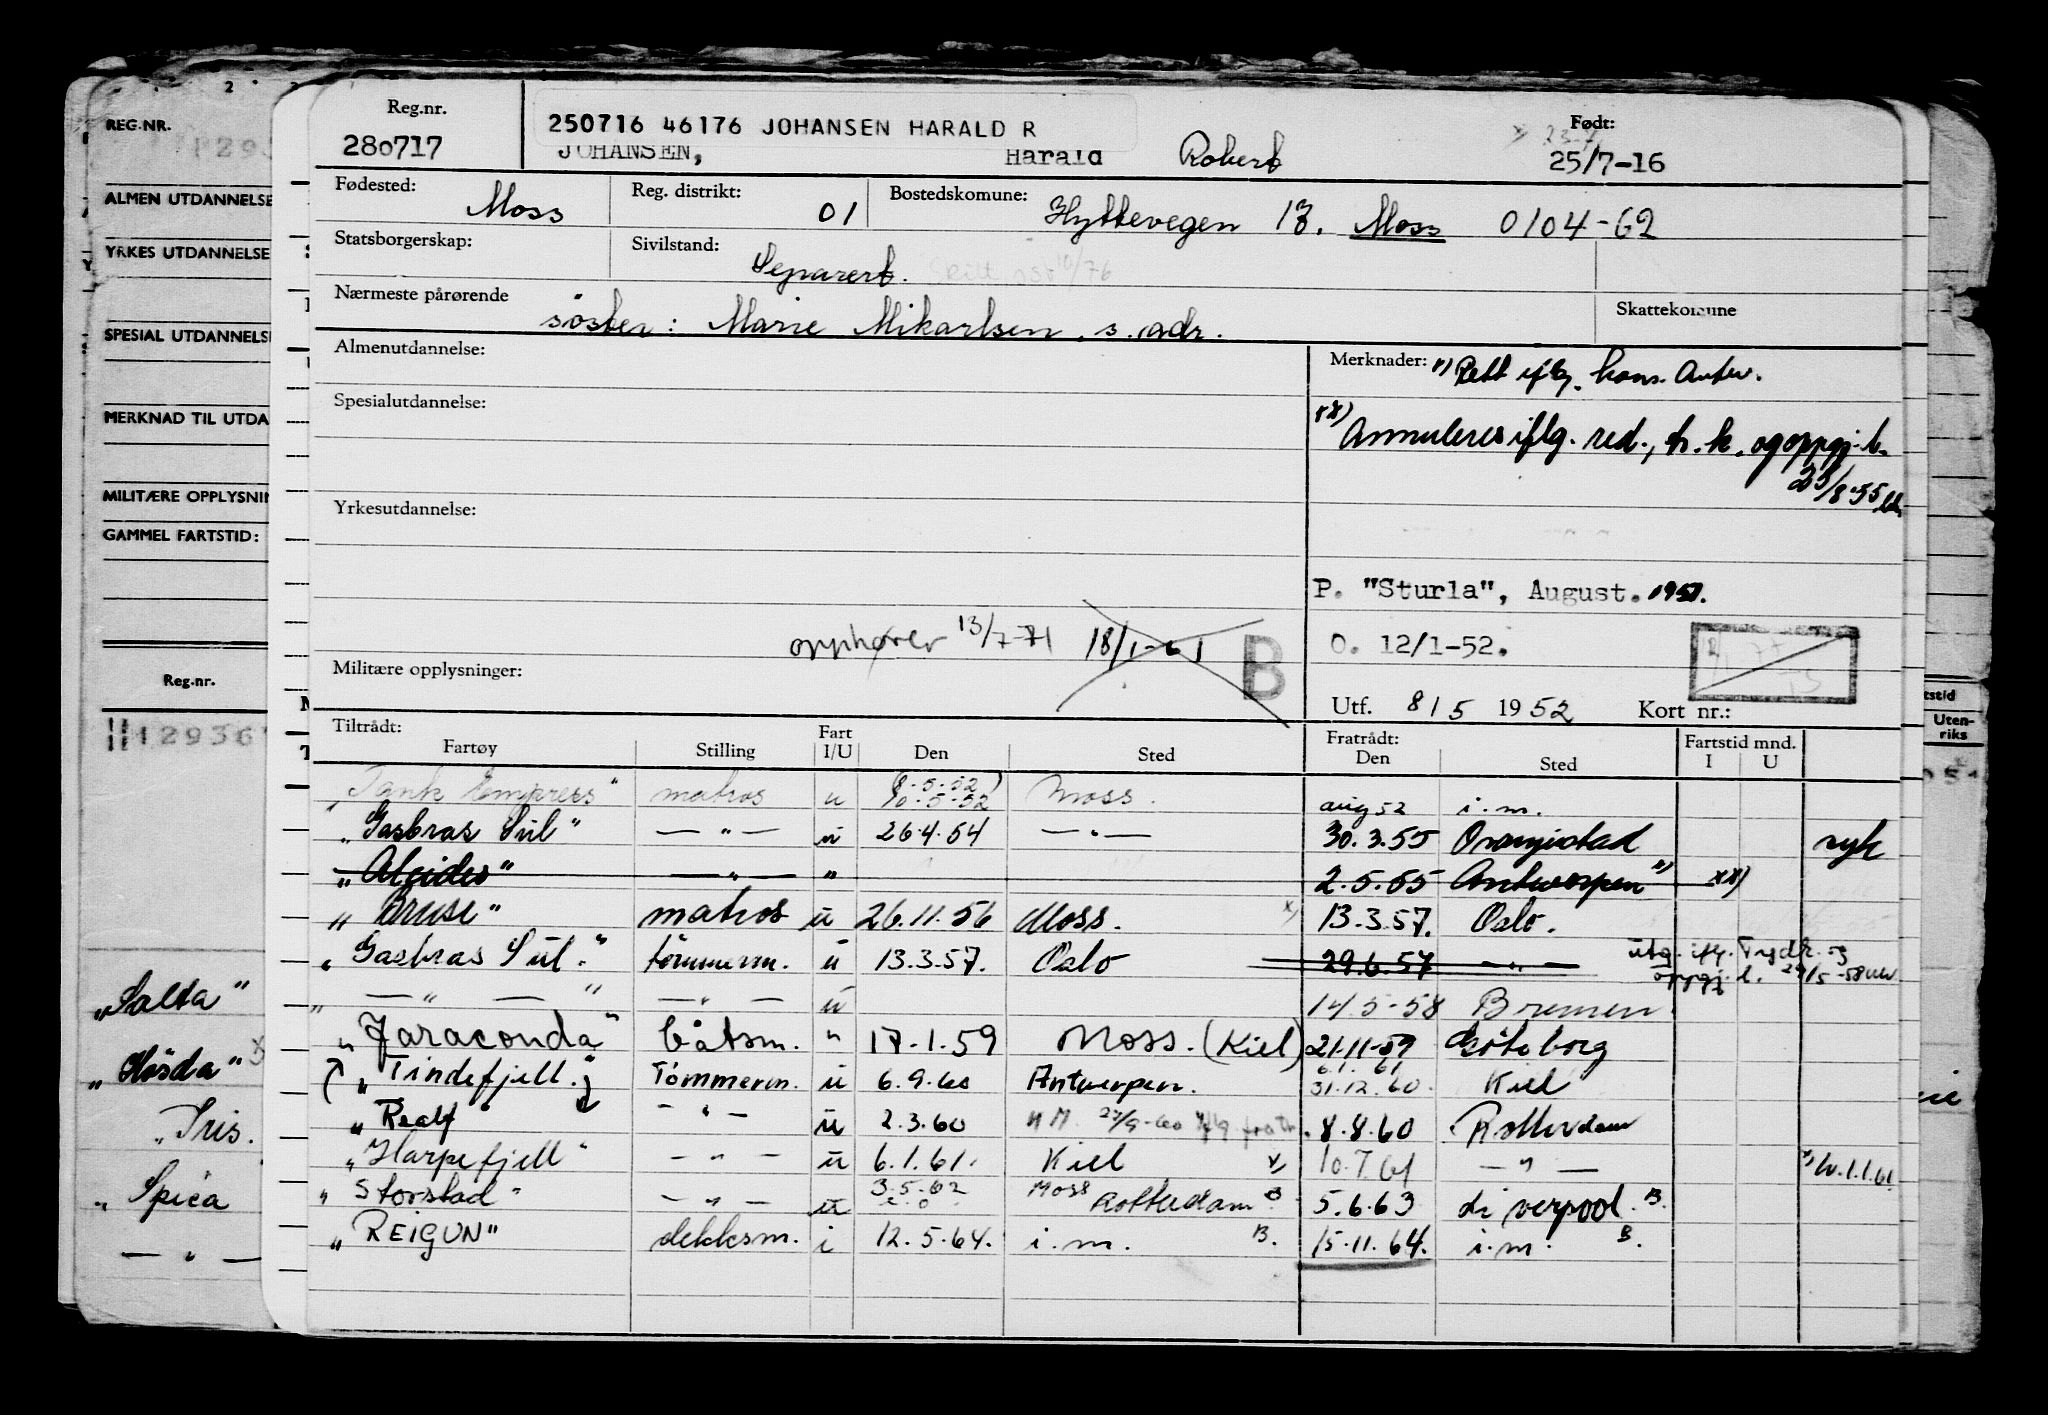 REG.NR.
ALMEN UTDANNELSE
YRKES UTDANNELSE
SPESIAL UTDANNELSE
MERKNAD TIL UTDA
MILITÆRE OPPLYSNIN
GAMMEL FARTSTID:
Reg.nr.
"Salta"
"Høsda"
"Iris.
" Spica
— " —
Reg.nr.
280717
250716 46176 JOHANSEN HARALD R
JOHANSEN, Harald Robert
Født:
25/7-16
Fødested: Moss
Reg. distrikt: 01
Bostedskomune: Hyttevegen 13. Moss 0104-62
Statsborgerskap:
Sivilstand: Separert.
Nærmeste pårørende
søster: Marie Mikarlsen, s. adr.
Skattekomune
Almenutdannelse:
Spesialutdannelse:
Yrkesutdannelse:
Merknader: x) Rett iflg. kons. Antw.
xx) Annuleres iflg. red., h.k. og oppgj.b.
P. "Sturla", August. 1951.
O. 12/1-52.
opphører 13/7-71 18/1-61 B
Militære opplysninger:
Utf. 8/5 1952 Kort nr.:
Tiltrådt:
Fartøy Stilling Fart I/U Den Sted
Fratrådt:
Den Sted
Fartstid mnd.
I U
"Tank Empress" matros u (8.5.52) 10-5-52 Moss. aug 52 i.m.
"Gasbras Sul" — " — u 26.4.54 — " — 30.3.55 Oranjestad syk
"Alcides" — " — " 2.5.55 Antwerpen x) xx)
"Bruse" matros u 26.11.56 Moss. x) 13.3.57. Oslo.
"Gasbras Sul." tømmerm. u 13.3.57. Oslo 29.6.57 — " —
" — " — " — " — u 14/5-58 Bremen
"Jaraconda" båtsm. " 17.1.59 Moss. (Kiel) 21.11.59 Göteborg
"Tindefjell" Tømmerm. u 6.9.60 Antwerpen. 6.1.61 31.12.60. Kiel
"Realf" — " — u 2.3.60 8.8.60 Rotterdam
"Harpefjell" — " — u 6.1.61. Kiel x) 10.7.61 — " —
"Storstad" — " — u 3.5.62 Moss Rotterdam B 5.6.63 Liverpool B.
"REIGUN" dekksm. i 12.5.64. i.m. B. 15.11.64. i.m. B.
tstid
Uten-
riks